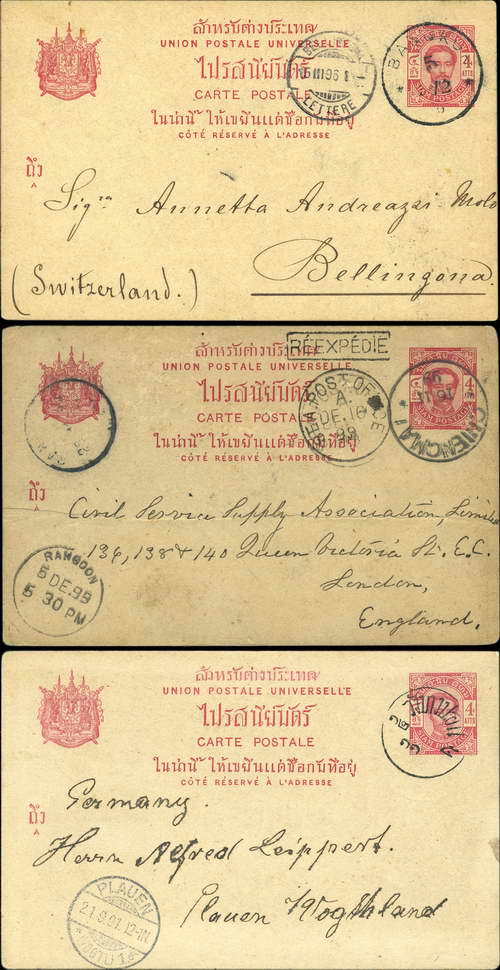 สำหรับต่างประเทศ
UNION POSTALE UNIVERSELLE
ไปรสนียบัตร์
CARTE POSTALE
ในน่านี้ ให้เขยีนแต่ชื่อกับที่อยู่
CÔTÉ RÉSERVÉ A L'ADRESSE
BANGKOK
4
ATTS
15 III 96
LETTERE
ถึง
A
Sigra Annetta Andreazzi Molo
Bellingona.
(Switzerland.)
RÉEXPÉDIE
สำหรับต่างประเทศ
UNION POSTALE UNIVERSELLE
ไปรสนียบัตร์
CARTE POSTALE
CÔTÉ RÉSERVÉ A L'ADRESSE
SEA POST OFFICE
A.
DE.10
99
CHIENGMAI
4
ถึง
A
Civil Service Supply Association, Limited
136, 138 & 140 Queen Victoria St. E.C.
London,
England.
RANGOON
5 DE.99
5 30 PM
สำหรับต่างประเทศ
UNION POSTALE UNIVERSELLE
ไปรสนียบัตร์
CARTE POSTALE
ในน่านี้ ให้เขยีนแต่ชื่อกับที่อยู่
CÔTÉ RÉSERVÉ A L'ADRESSE
4
ATTS
ถึง
A
Germany.
Herrn Alfred Leippert.
Plauen i/Vogthland
PLAUEN
21.9.01.12-1N
(VOGTL) 1